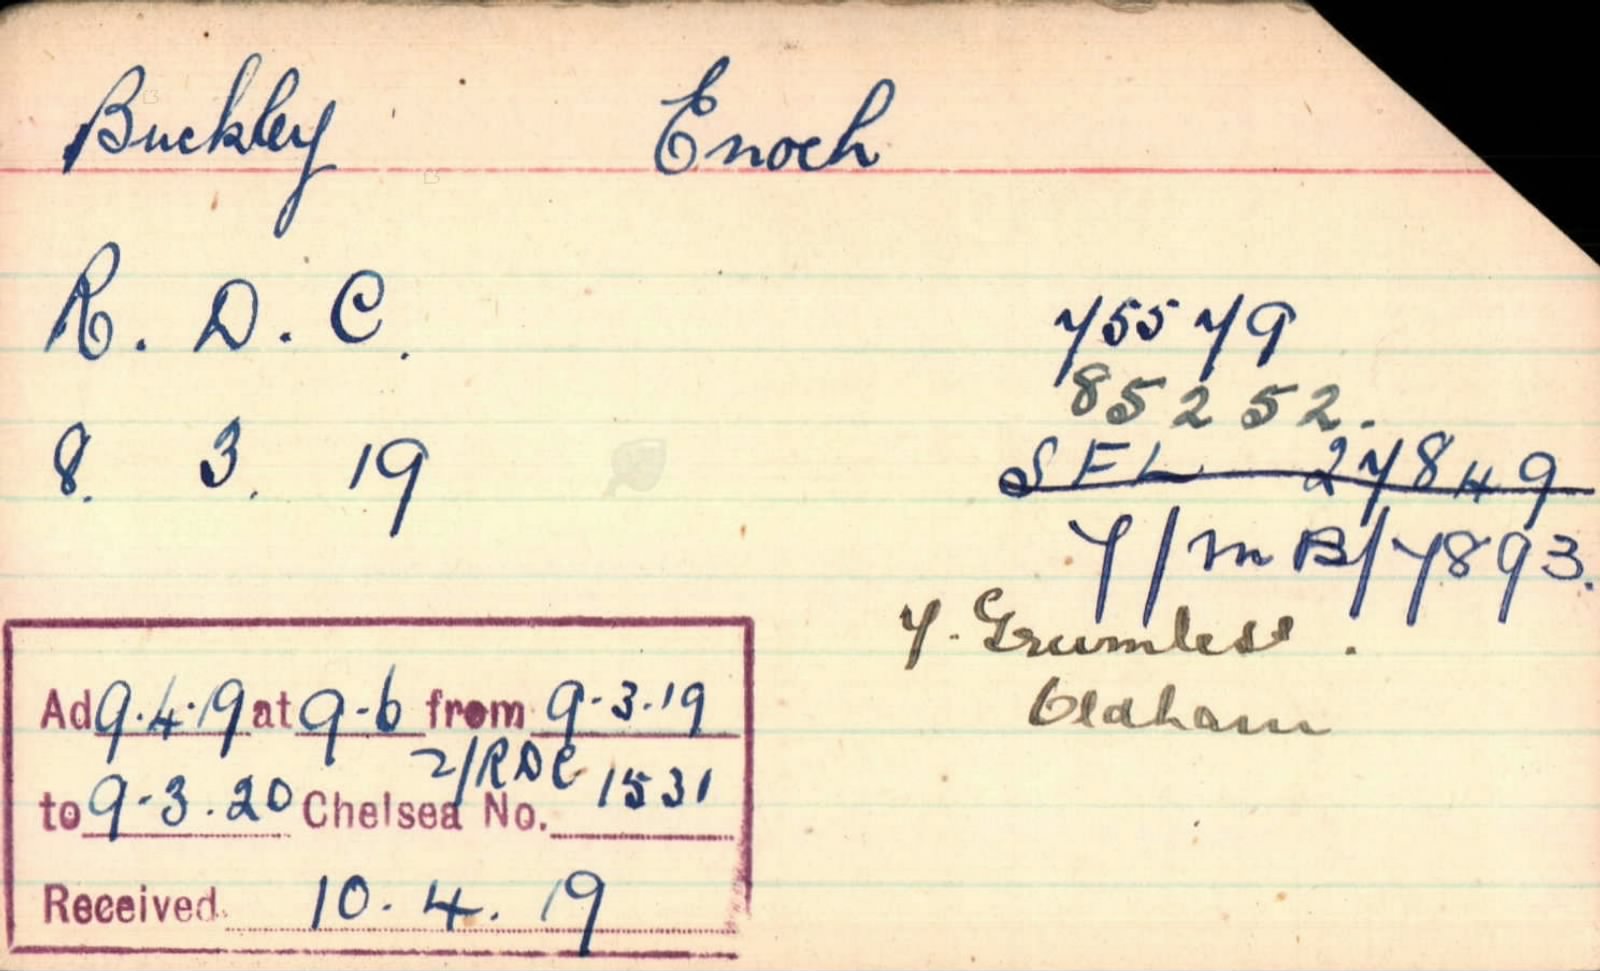 Buckley Enoch
R. D. C.
75579
85252.
8. 3. 19
SFL 27849
7/MB/7893.
Y. Grumless.
Oldham
Ad 9.4.19 at 9-6 from 9-3-19
to 9-3.20 Chelsea No. 2/RDC 1531
Received 10.4.19